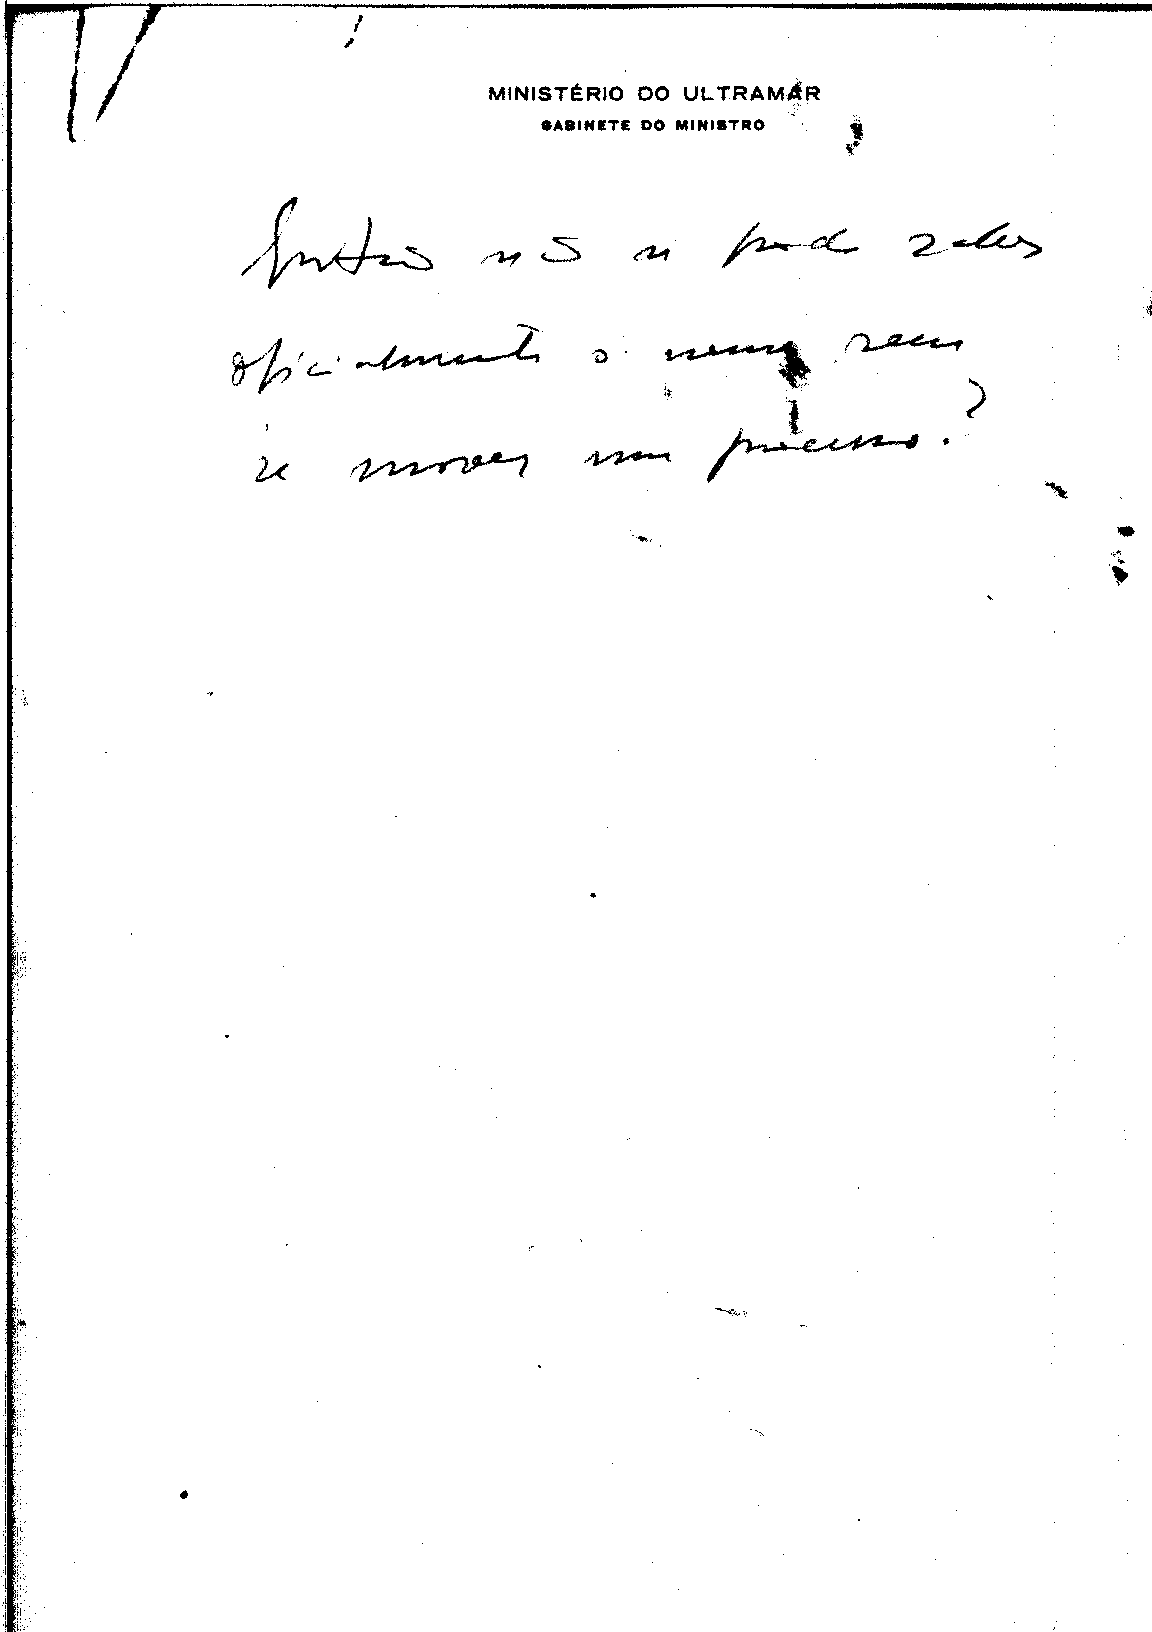 MINISTÉRIO DO ULTRAMAR
GABINETE DO MINISTRO
Então não se pode saber
oficialmente o nome sem
se mover um processo?